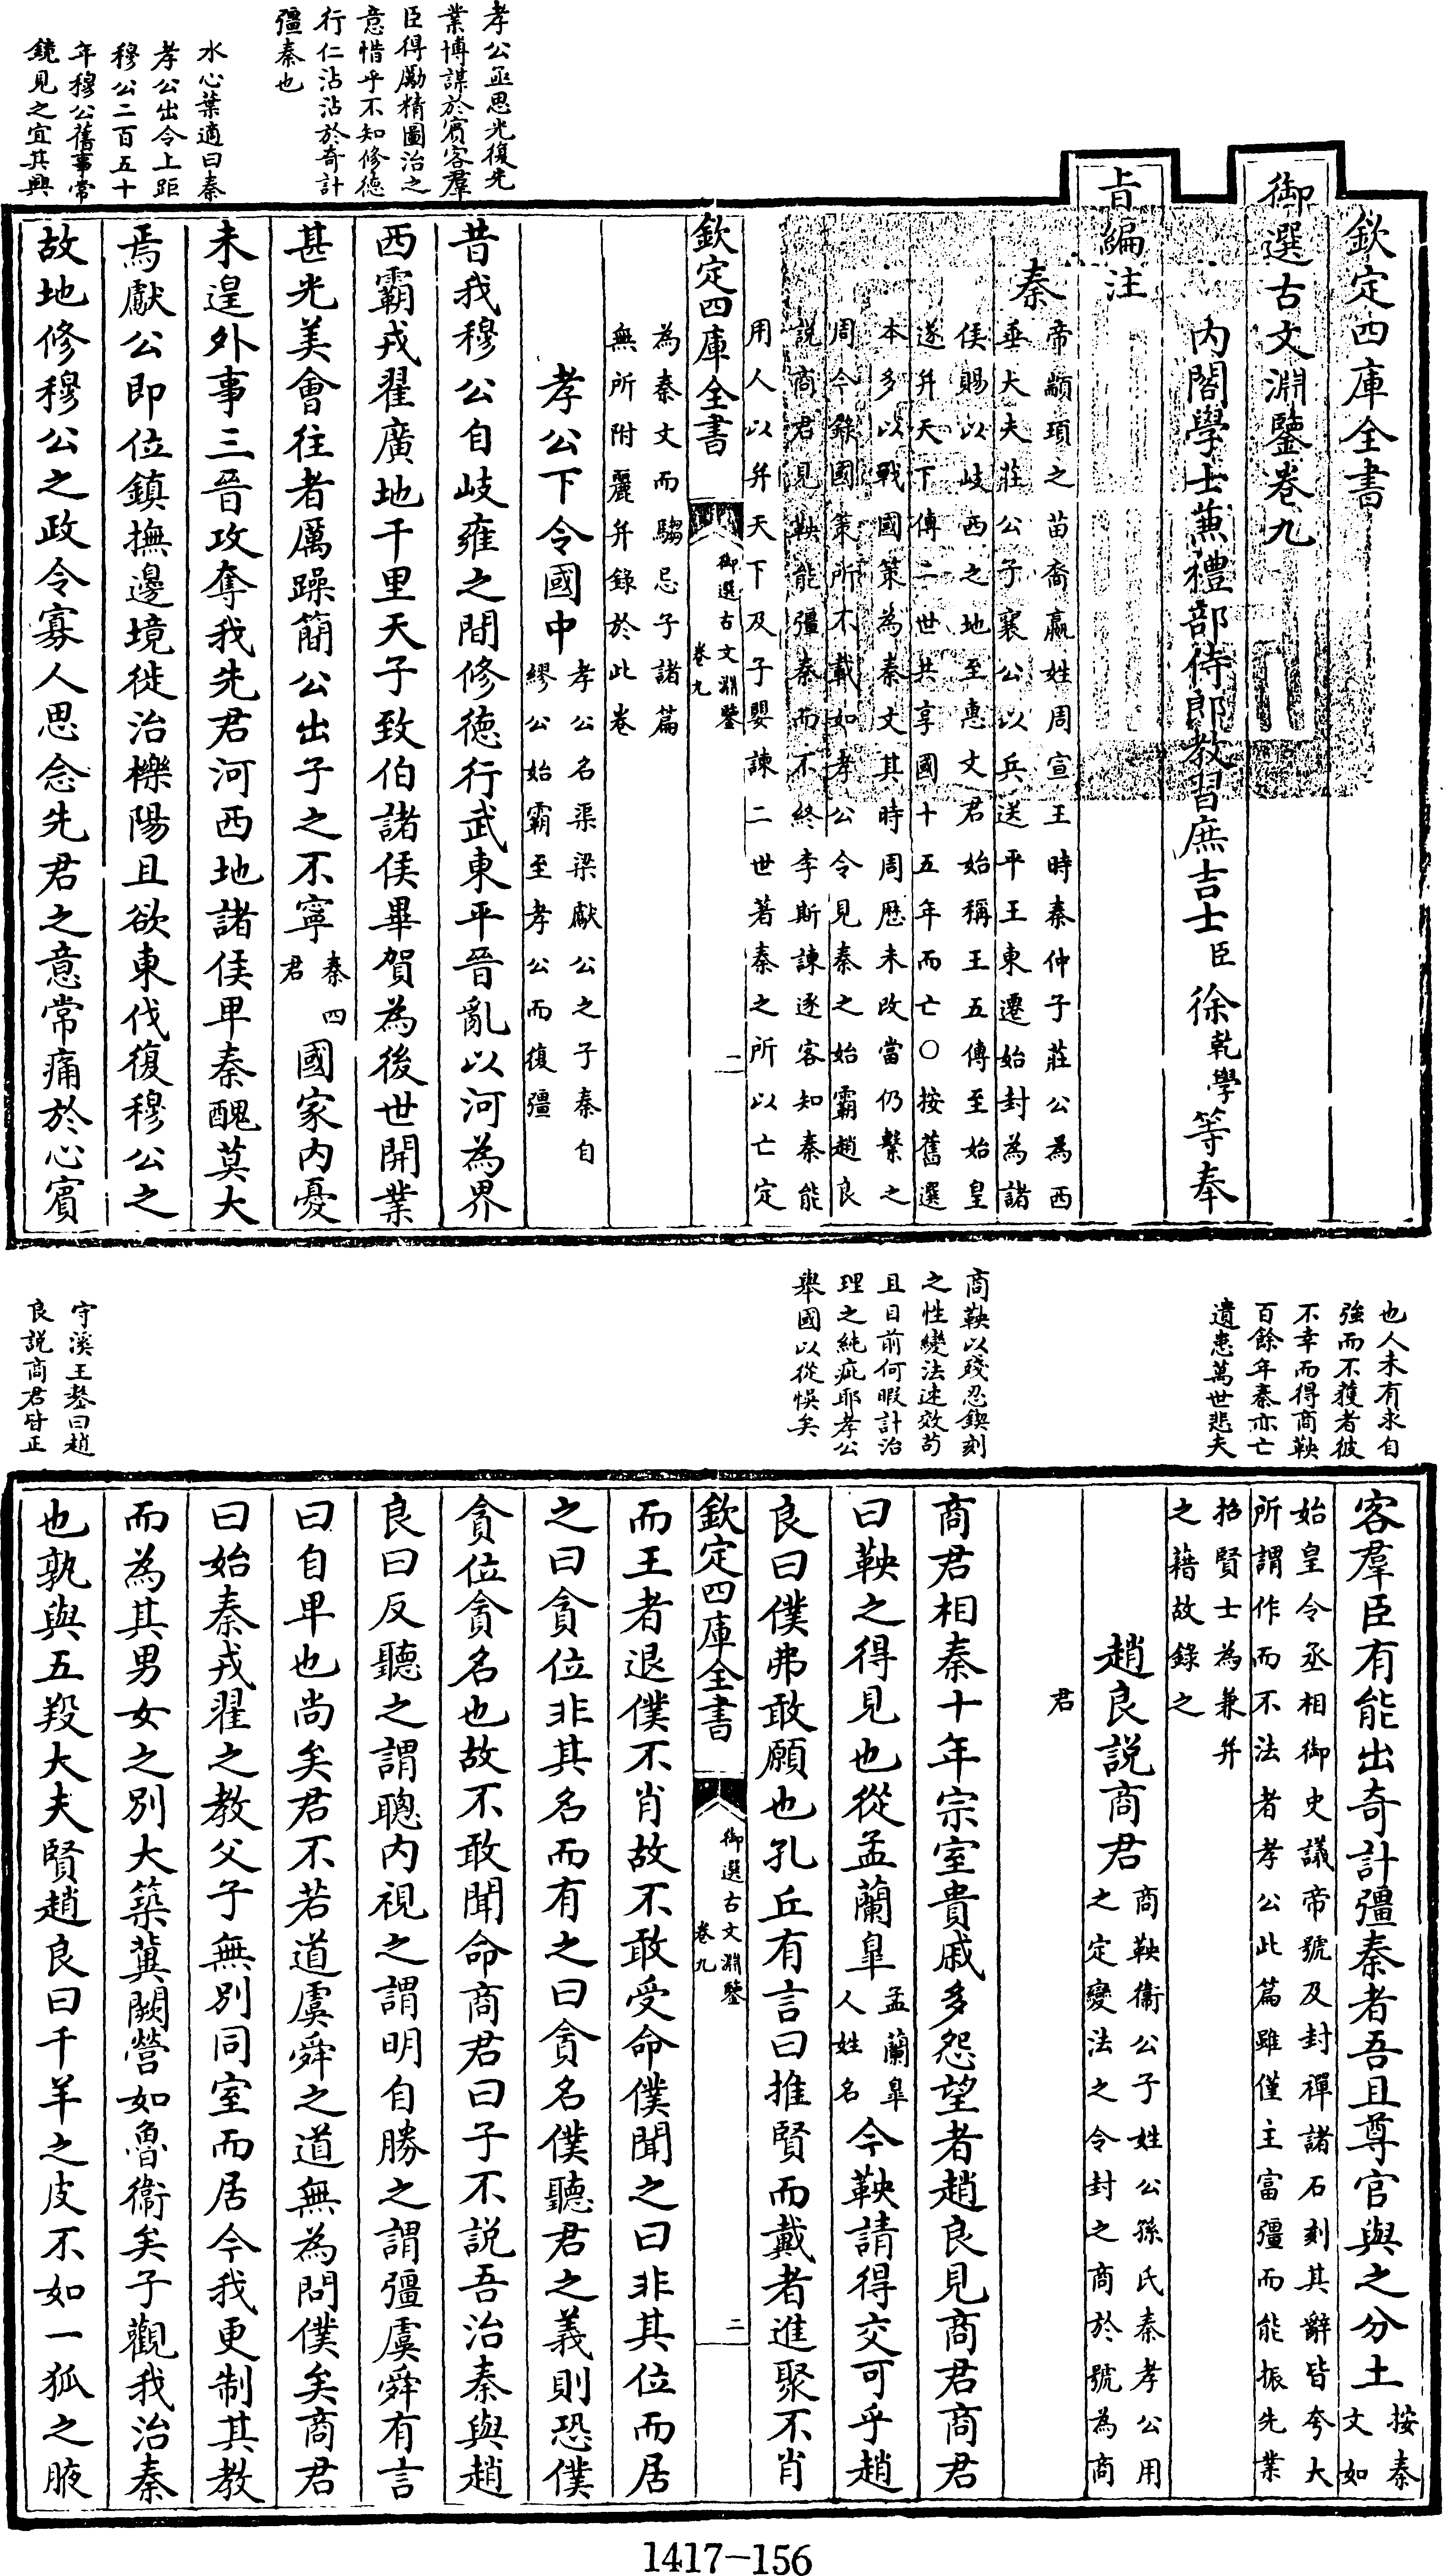 孝公亟思光復先
業博謀於賓客羣
臣得勵精圖治之
意惜乎不知修德
行仁沾沾於奇計
彊秦也
水心葉適曰秦
孝公出令上距
穆公二百五十
年穆公舊事常
鏡見之宜其興
欽定四庫全書
御選古文淵鑒卷九
內閣學士兼禮部侍郎教習庶吉士臣徐乾學等奉
旨編注
秦
帝顓頊之苗裔嬴姓周宣王時秦仲子莊公為西
垂大夫莊公子襄公以兵送平王東遷始封為諸
侯賜以岐西之地至惠文君始稱王五傳至始皇
遂并天下傳二世共享國十五年而亡〇按舊選
本多以戰國策為秦文其時周歷未改當仍繫之
周今錄國策所不載如孝公令見秦之始霸趙良
說商君見鞅能彊秦而不終李斯諫逐客知秦能
用人以并天下及子嬰諫二世著秦之所以亡定
欽定四庫全書 御選古文淵鑒 卷九 一
為秦文而騶忌子諸篇
無所附麗并錄於此卷
孝公下令國中
孝公名渠梁獻公之子秦自
繆公始霸至孝公而復彊
昔我穆公自岐雍之間修德行武東平晉亂以河為界
西霸戎翟廣地千里天子致伯諸侯畢賀為後世開業
甚光美會往者厲躁簡公出子之不寧秦四君國家內憂
未遑外事三晉攻奪我先君河西地諸侯卑秦醜莫大
焉獻公即位鎮撫邊境徙治櫟陽且欲東伐復穆公之
故地修穆公之政令寡人思念先君之意常痛於心賓
也人未有求自
強而不獲者彼
不幸而得商鞅
百餘年秦亦亡
遺患萬世悲夫
商鞅以殘忍鍥刻
之性變法速效苟
且目前何暇計治
理之純疵耶孝公
舉國以從悞矣
守溪王鏊曰趙
良說商君皆正
客羣臣有能出奇計彊秦者吾且尊官與之分土
按秦
文如
始皇令丞相御史議帝號及封禪諸石刻其辭皆夸大
所謂作而不法者孝公此篇雖僅主富彊而能振先業
招賢士為兼并
之藉故錄之
趙良說商君
商鞅衞公子姓公孫氏秦孝公用
之定變法之令封之商於號為商
君
商君相秦十年宗室貴戚多怨望者趙良見商君商君
曰鞅之得見也從孟蘭皐孟蘭皐人姓名今鞅請得交可乎趙
良曰僕弗敢願也孔丘有言曰推賢而戴者進聚不肖
欽定四庫全書 御選古文淵鑒 卷九 二
而王者退僕不肖故不敢受命僕聞之曰非其位而居
之曰貪位非其名而有之曰貪名僕聽君之義則恐僕
貪位貪名也故不敢聞命商君曰子不說吾治秦與趙
良曰反聽之謂聰內視之謂明自勝之謂彊虞舜有言
曰自卑也尚矣君不若道虞舜之道無為問僕矣商君
曰始秦戎翟之教父子無別同室而居今我更制其教
而為其男女之別大築冀闕營如魯衞矣子觀我治秦
也孰與五羖大夫賢趙良曰千羊之皮不如一狐之腋
1417-156